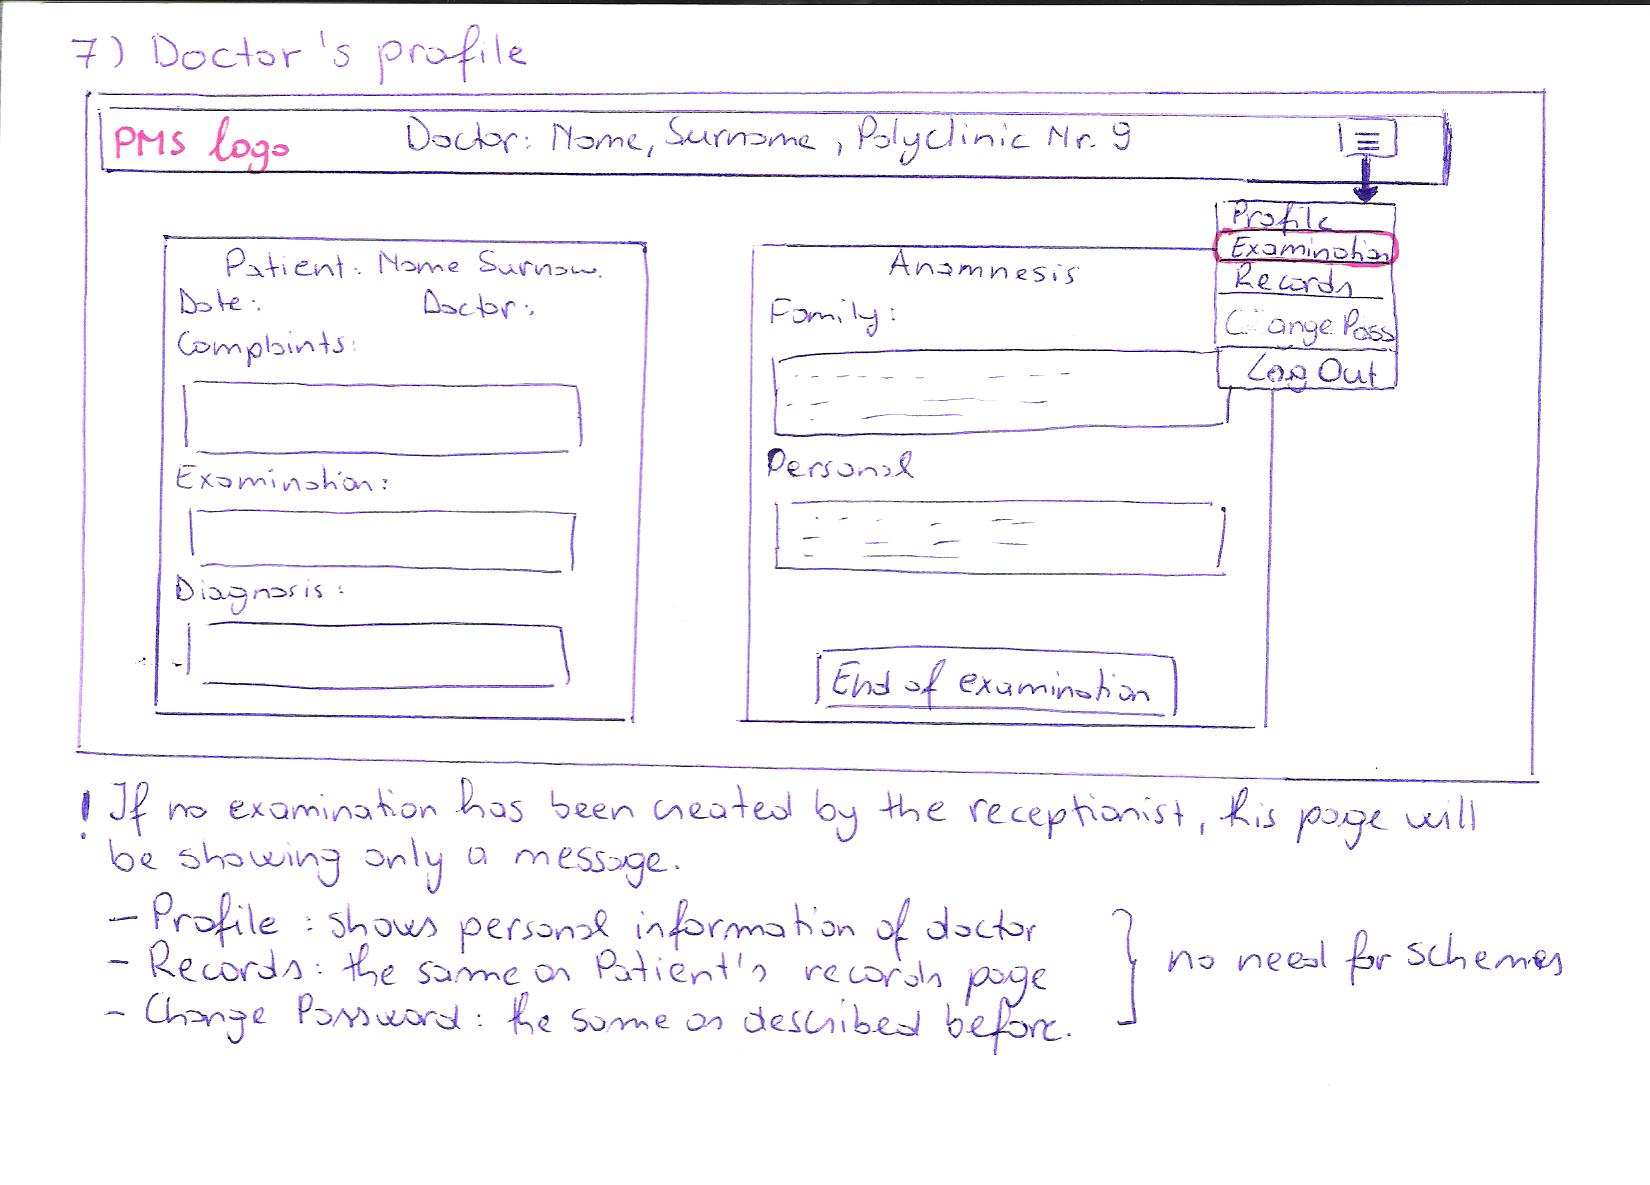 7) Doctor's profile
PMS logo Doctor: Name, Surname, Polyclinic Nr. 9
Profile
Examination
Records
Change Pass
Log Out
Patient: Name Surnam.
Date: Doctor:
Complaints:
Examination:
Diagnosis:
Anamnesis
Family:
Personal
End of examination
! If no examination has been created by the receptionist, this page will
be showing only a message.
- Profile : shows personal information of doctor
- Records: the same as Patient's records page
- Change Password: the same as described before.
no need for schemes